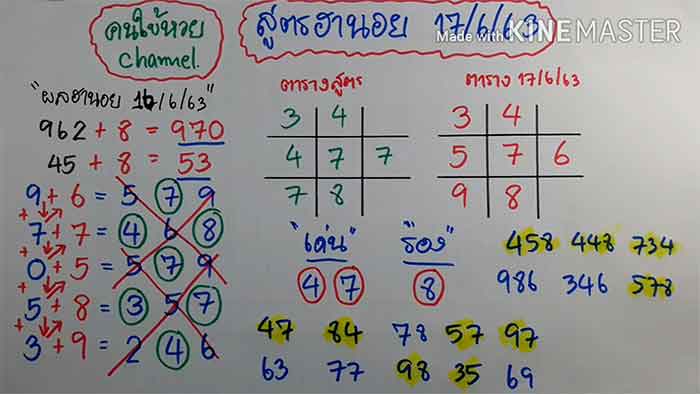 คนใบ้หวย
channel.
สูตรฮานอย 17/6/63
Made with KINEMASTER
"ผลฮานอย 16/6/63"
962 + 8 = 970
45 + 8 = 53
9 + 6 = 5 7 9
+
7 + 7 = 4 6 8
+
0 + 5 = 5 7 9
+
5 + 8 = 3 5 7
+
3 + 9 = 2 4 6
ตารางสูตร
3 4
4 7 7
7 8
ตาราง 17/6/63
3 4
5 7 6
9 8
"เด่น"
4 7
"รอง"
8
458 448 734
986 346 578
47 84 78 57 97
63 77 98 35 69